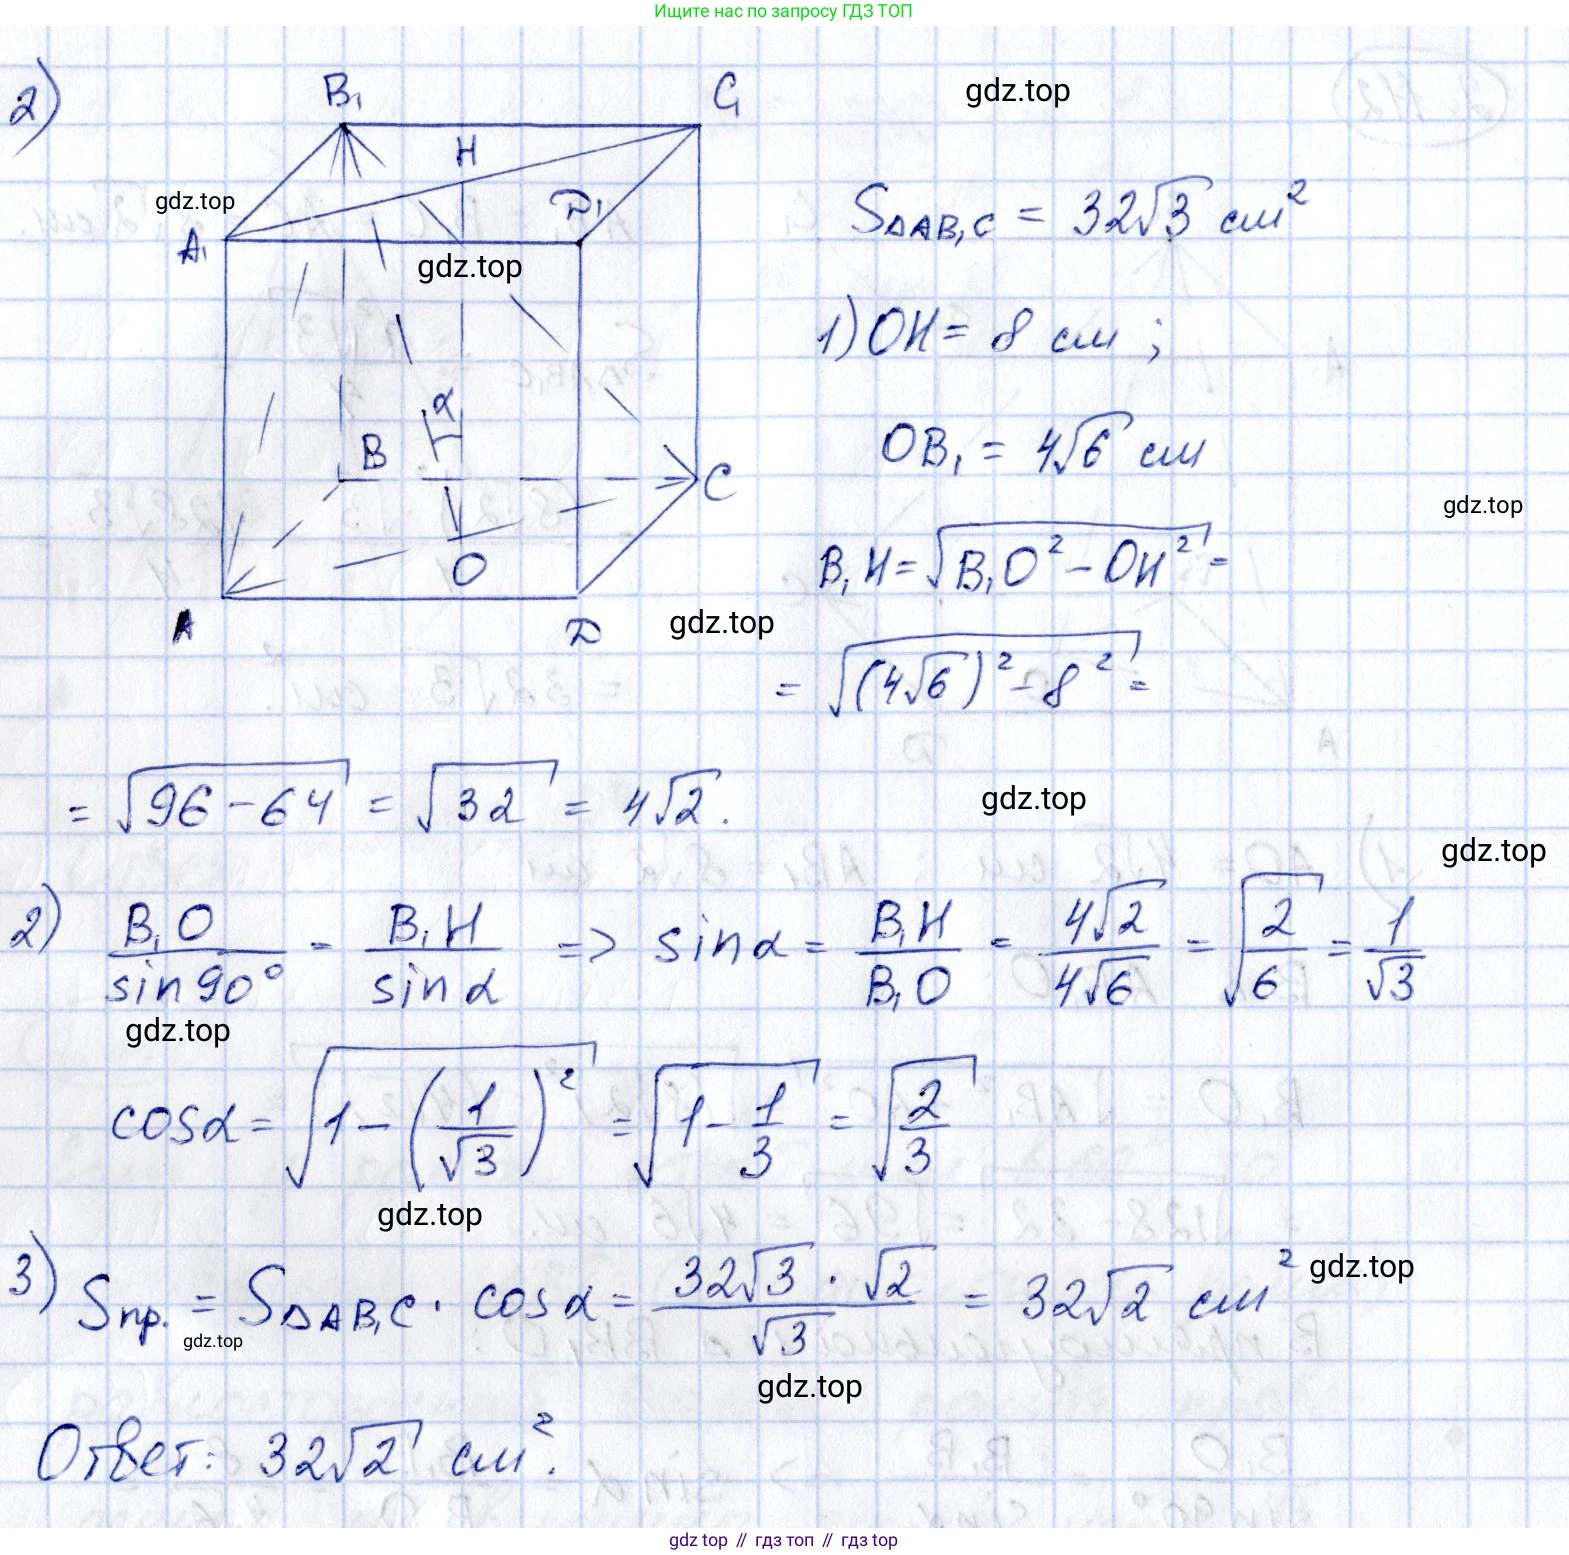 Ищите нас по запросу ГДЗ ТОП
2)
B₁ C₁ gdz.top
H
gdz.top D₁
A₁ gdz.top
S△AB₁C = 32√3 см²
1) OH = 8 см ;
α
B
OB₁ = 4√6 см
C
gdz.top
O
B₁H = √(B₁O² − OH²) =
A D gdz.top
= √((4√6)² − 8²) =
= √(96 − 64) = √32 = 4√2.
gdz.top
gdz.top
2) B₁O / sin 90° = B₁H / sin α => sin α = B₁H / B₁O = 4√2 / 4√6 = √(2/6) = 1/√3
gdz.top
cos α = √(1 − (1/√3)²) = √(1 − 1/3) = √(2/3)
gdz.top
3) Sпр. = S△AB₁C · cos α = 32√3 · √2 / √3 = 32√2 см² gdz.top
gdz.top
gdz.top
Ответ: 32√2 см².
gdz top // гдз топ // гдз top